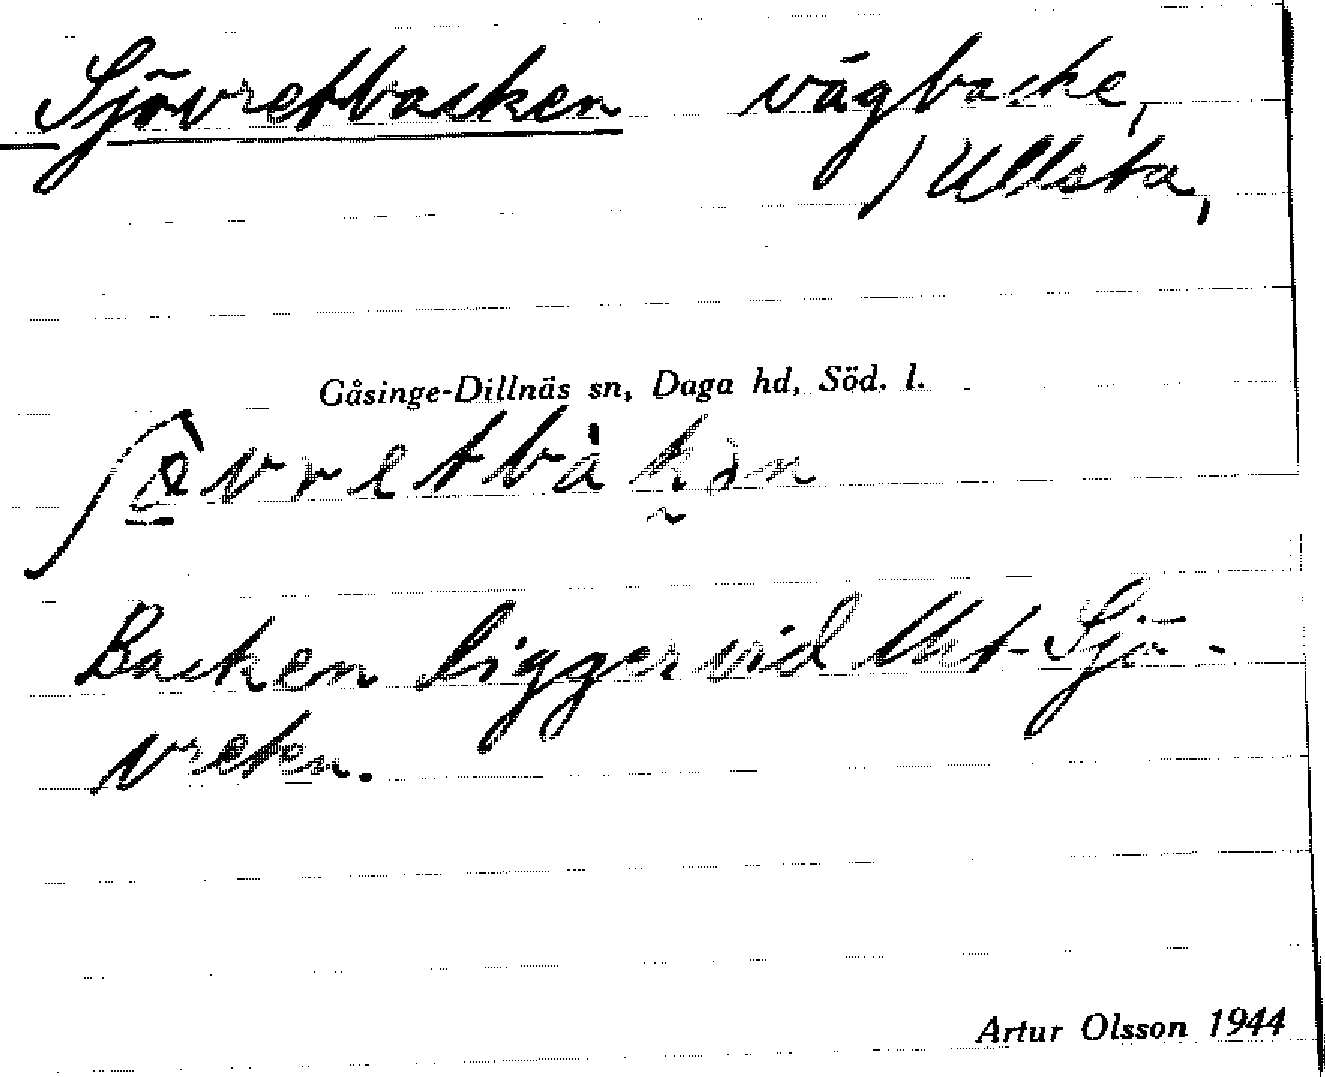 Sjövretbacken vägbacke,
/Ullsta,
Gåsinge-Dillnäs sn, Daga hd, Söd. l.
Backen ligger vid Ut-Sjö-
vreten.
Artur Olsson 1944